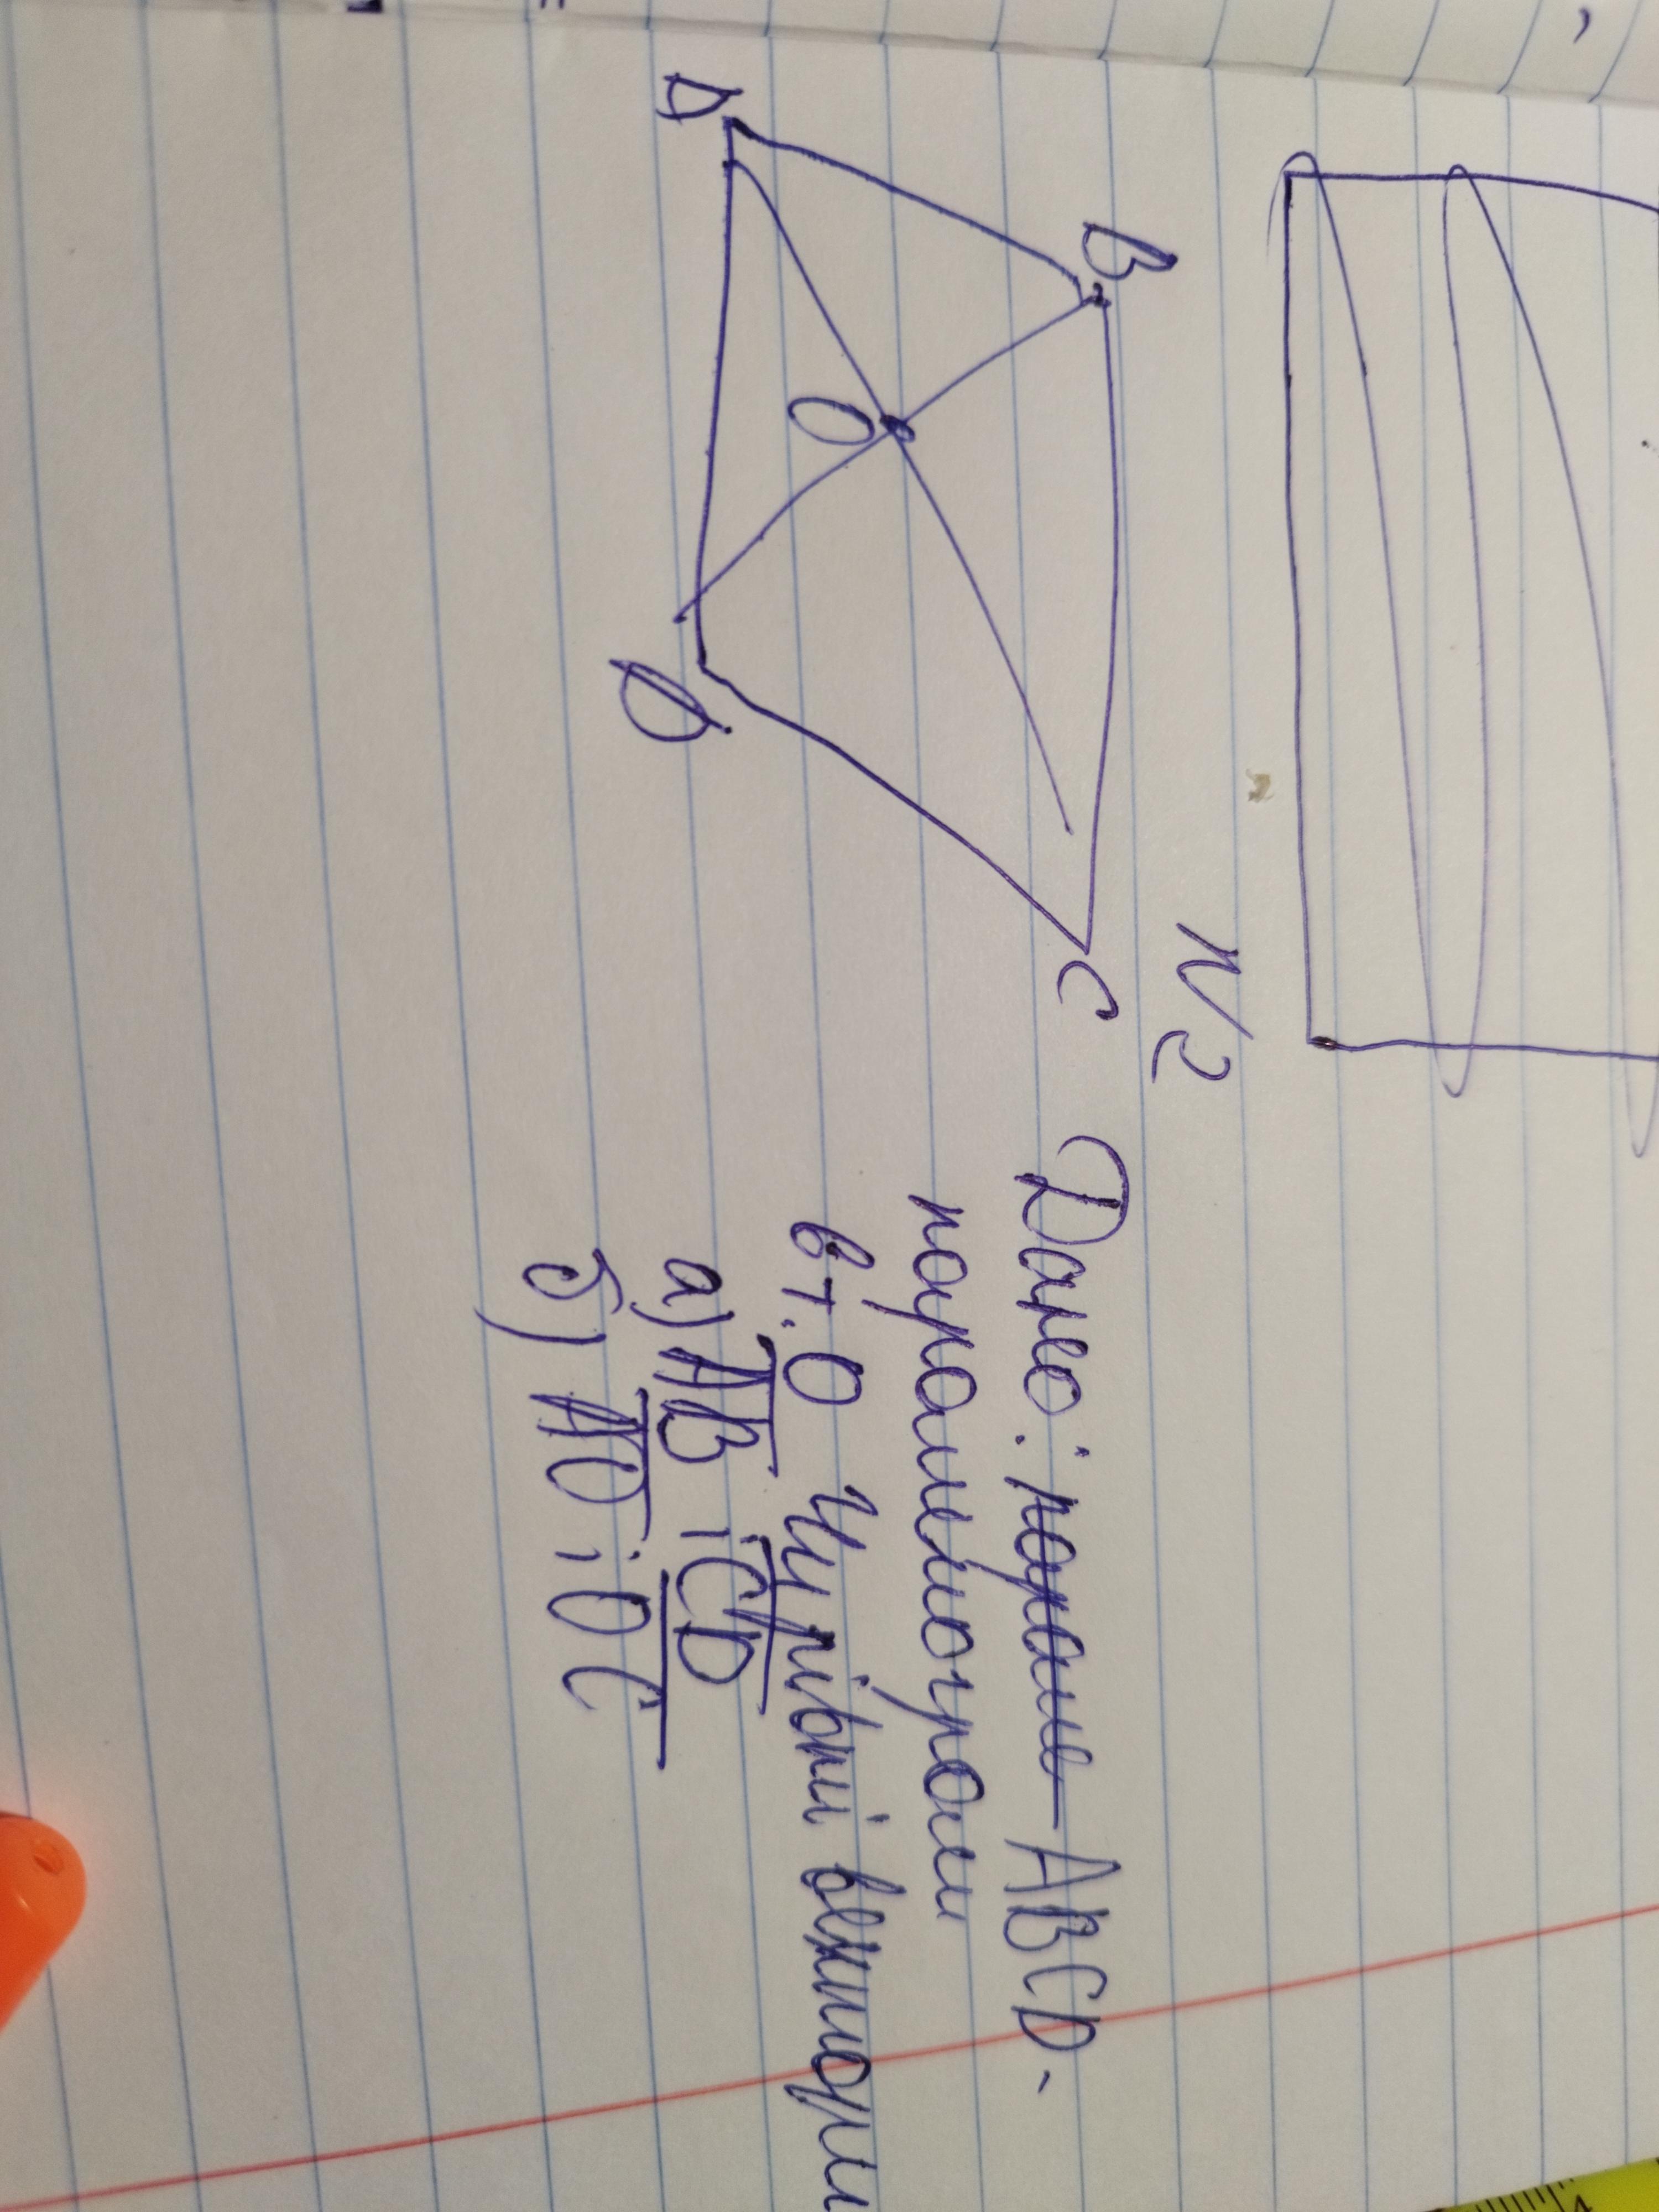 N2
B
C
A
D
O
Дано: парале ABCD-
паралелограм
в т. O Чи рівні вектори
а) AB і CD
б) AO і OC